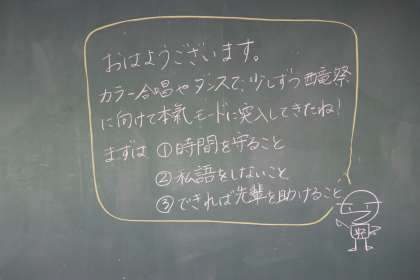 おはようございます。
カラー合唱やダンスで、少しずつ西竜祭
に向けて本氣モードに突入してきたね!
まずは ①時間を守ること
②私語をしないこと
③できれば先輩を助けること